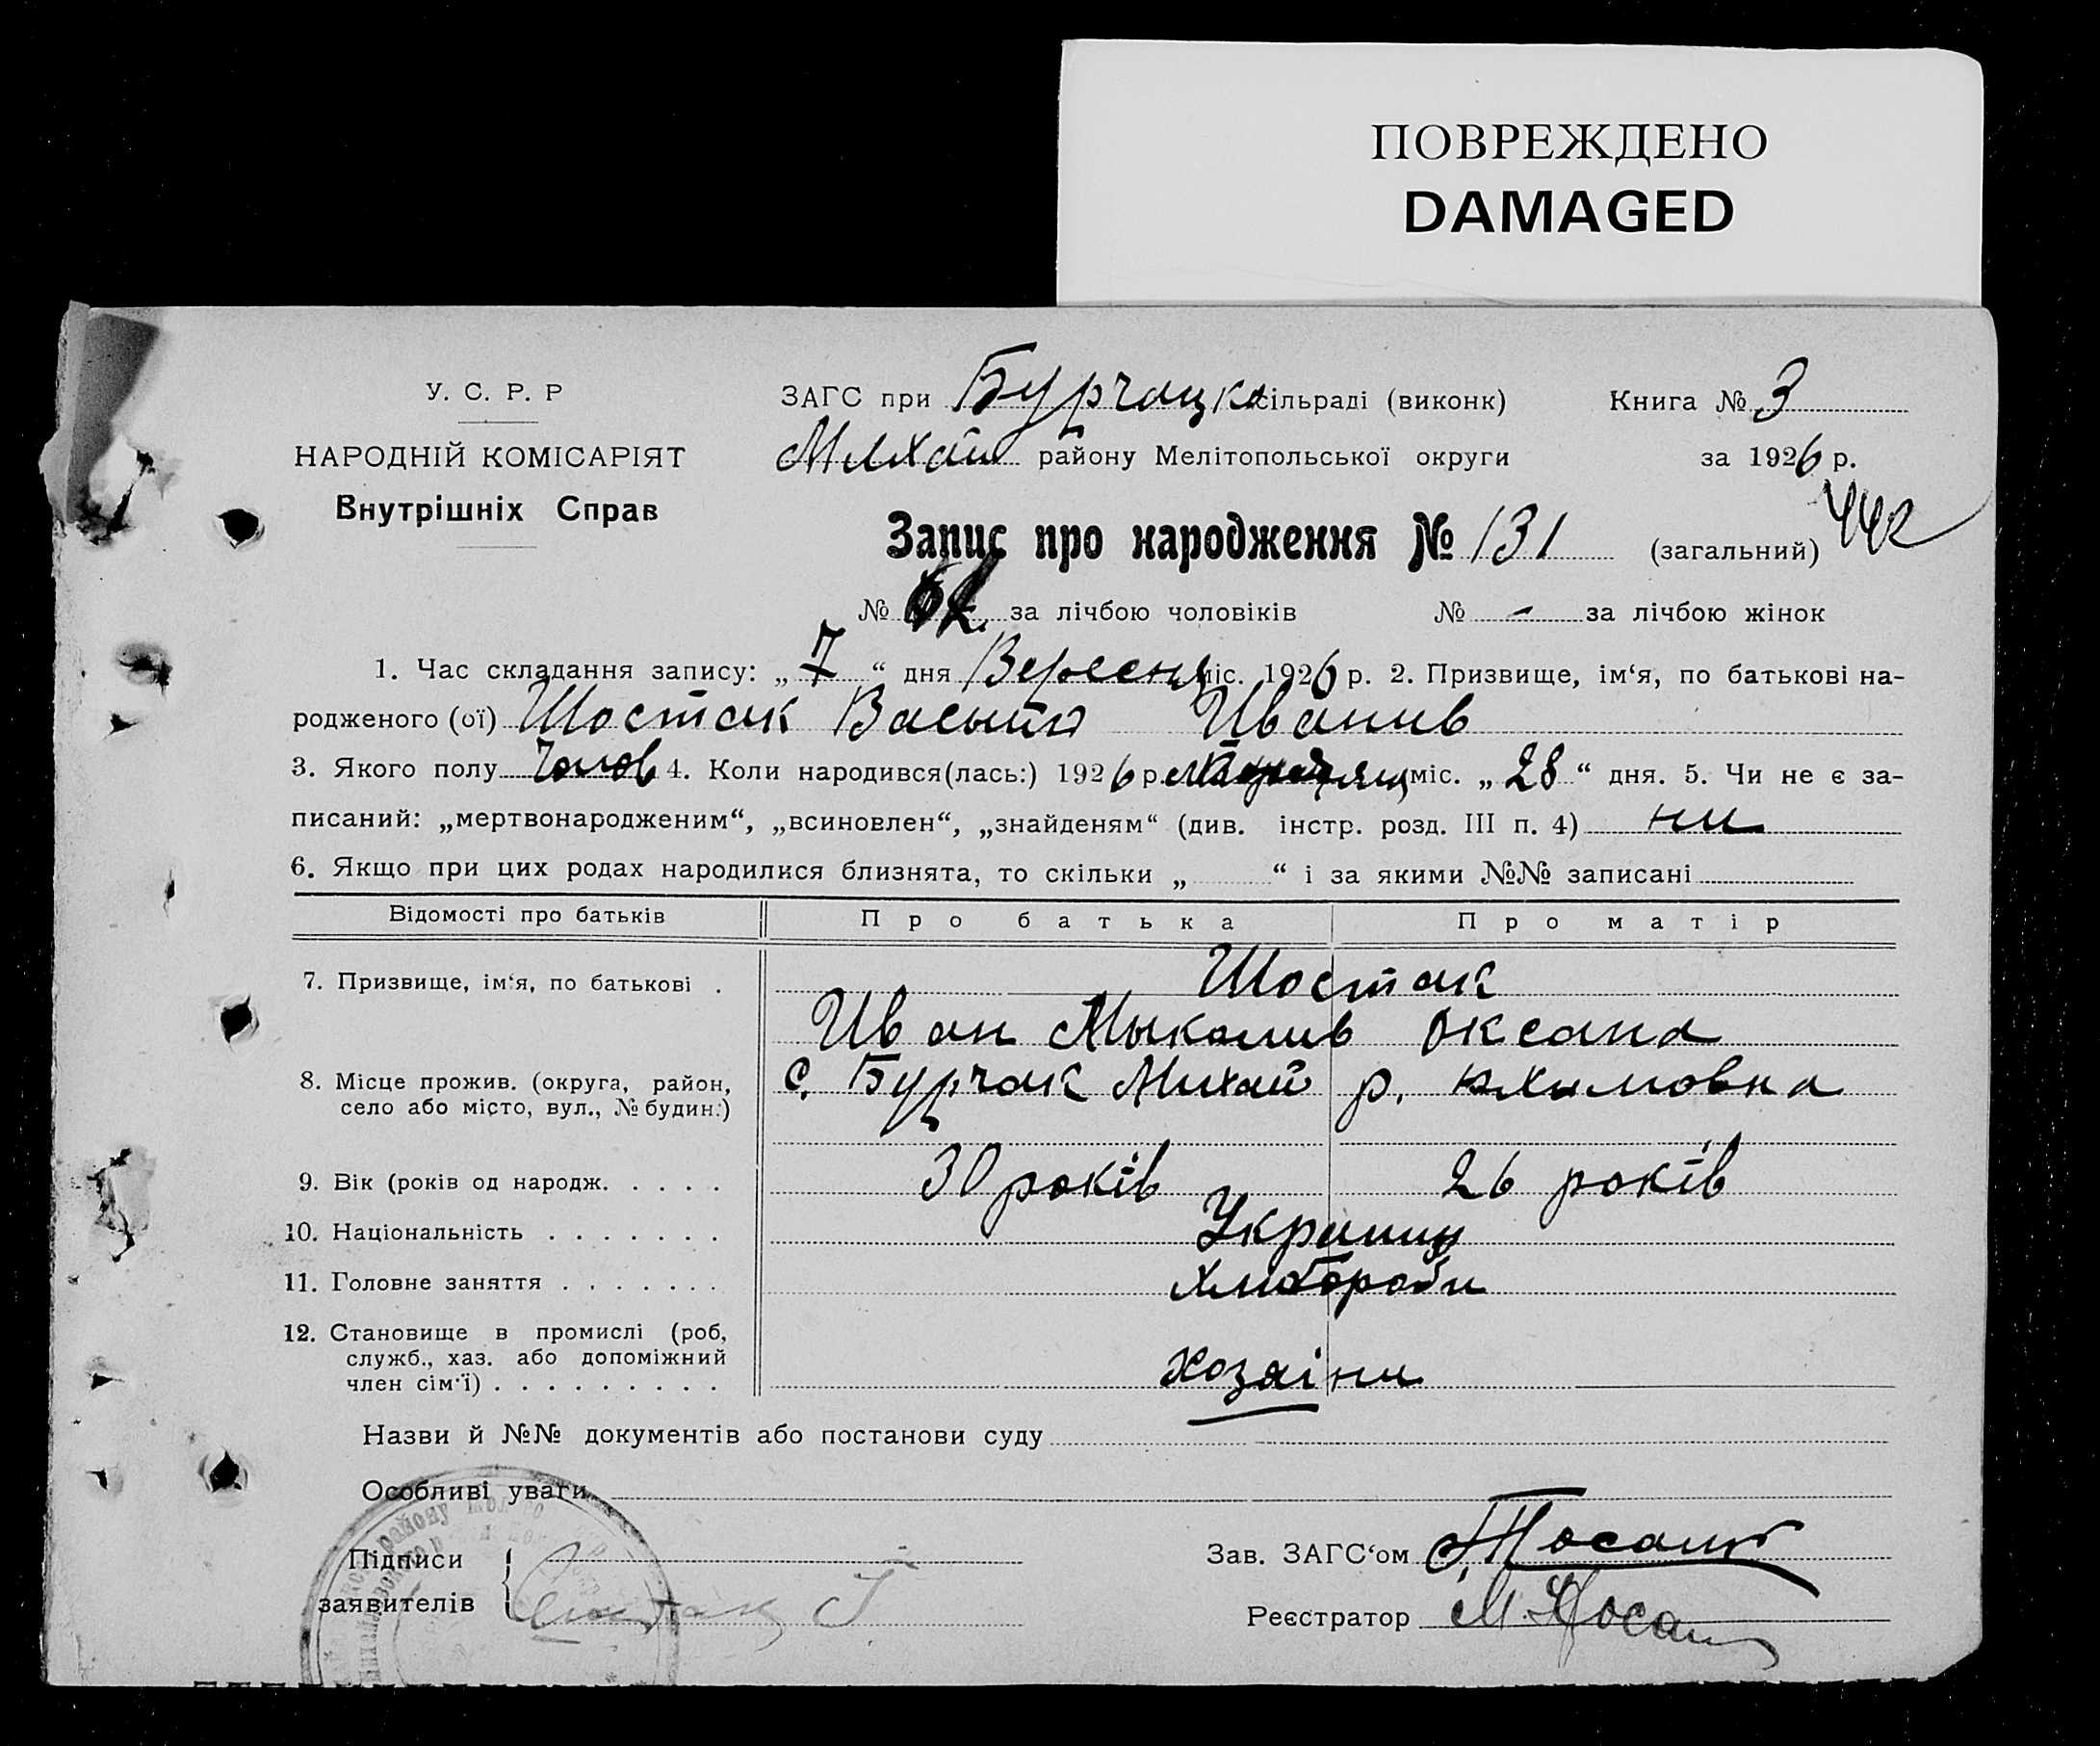 ПОВРЕЖДЕНО
DAMAGED
У. С. Р. Р
НАРОДНІЙ КОМІСАРІЯТ
Внутрішніх Справ
ЗАГС при Бурчацкосільраді (виконк)
Михай району Мелітопольської округи
Книга № 3
за 1926 р.
442
Запис про народження № 131 (загальний)
№ за лічбою чоловіків № - за лічбою жінок
1. Час складання запису: „7“ дня Вересня міс. 1926 р. 2. Призвище, ім‘я, по батькові на-
родженого (ої) Шостак Васыль Иванив
3. Якого полу Чолов 4. Коли народився(лась:) 1926 р. міс. „28“ дня. 5. Чи не є за-
писаний: „мертвонародженим“, „всиновлен“, „знайденям“ (див. інстр. розд. III п. 4) ни
6. Якщо при цих родах народилися близнята, то скільки „ “ і за якими №№ записані
Відомості про батьків Про батька Про матір
7. Призвище, ім‘я, по батькові . Шостак
Иван Мыколив Оксана
8. Місце прожив. (округа, район, село або місто, вул., № будин.) с. Бурчак Михай р. Юхимовна
9. Вік (років од народж. . . . . 30 років 26 років
10. Національність . . . . . . . Украинц
11. Головне заняття . . . . . . . Хлибороби
12. Становище в промислі (роб,
служб., хаз. або допоміжний
член сім‘ї) . . . . . . . . . Хозяіни
Назви й №№ документів або постанови суду
Особливі уваги
Підписи
заявителів Шостак І
Зав. ЗАГС‘ом
Реєстратор